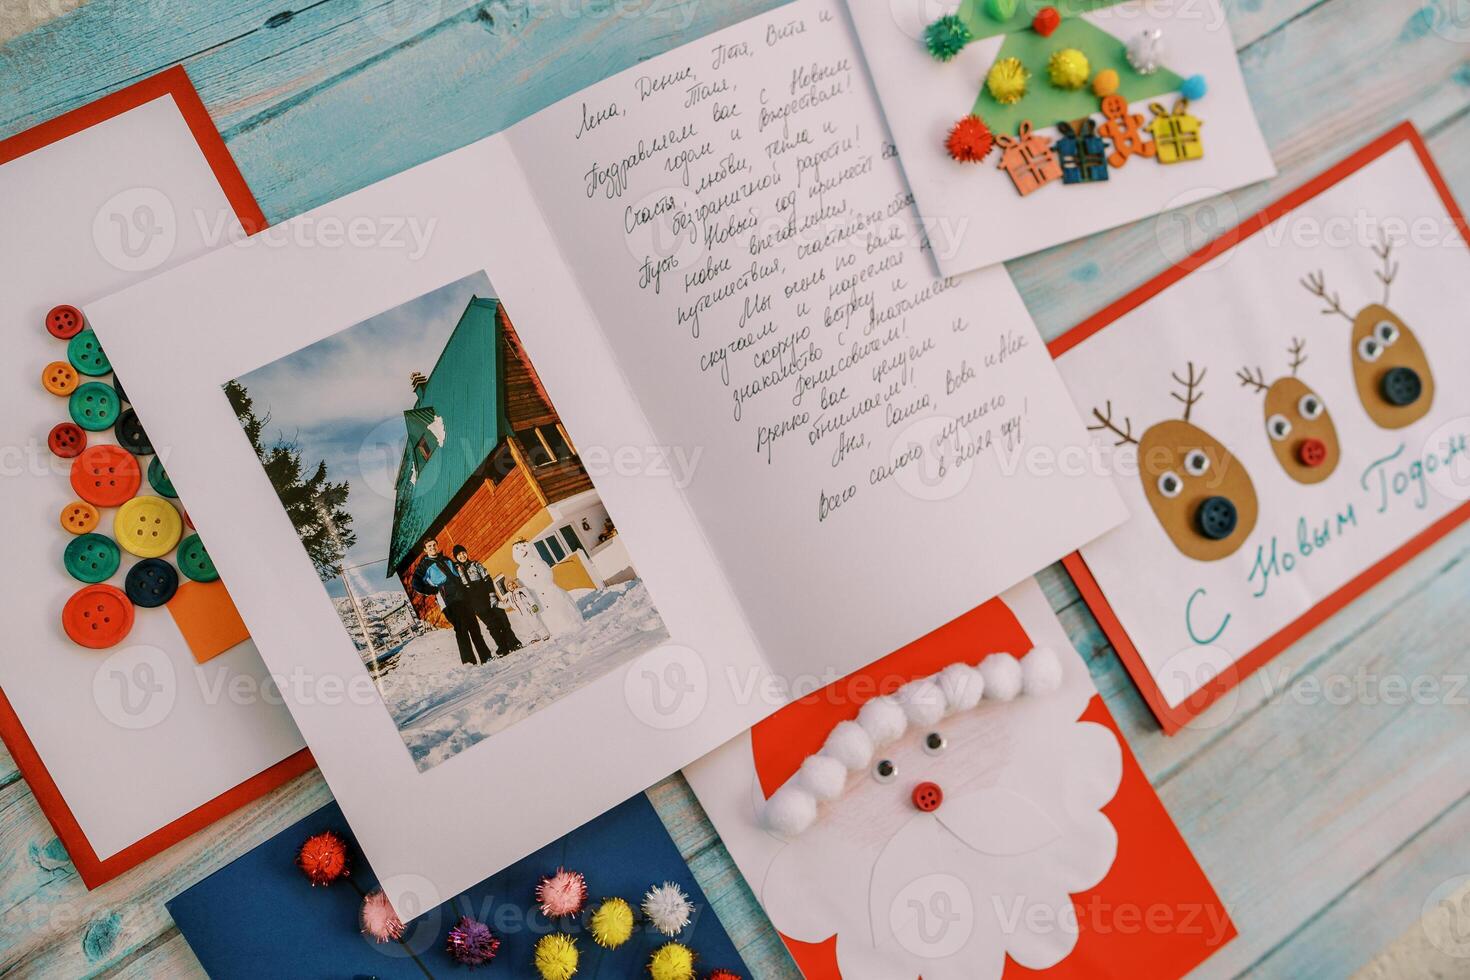 Лена, Денис, Петя, Витя и
Толя,
Поздравляем вас с Новым
годом и Рождеством!
Счастья, любви, тепла и
безграничной радости!
Пусть Новый год принесёт вам
новые впечатления,
путешествия, счастливые
Мы очень по вам
скучаем и надеемся
скорую встречу и
знакомство с Анатолием
Денисовичем!
Крепко вас целуем и
обнимаем!
Аня, Саша, Вова и Айк
Всего самого лучшего
в 2022 году!
С Новым Годом
Vecteezy